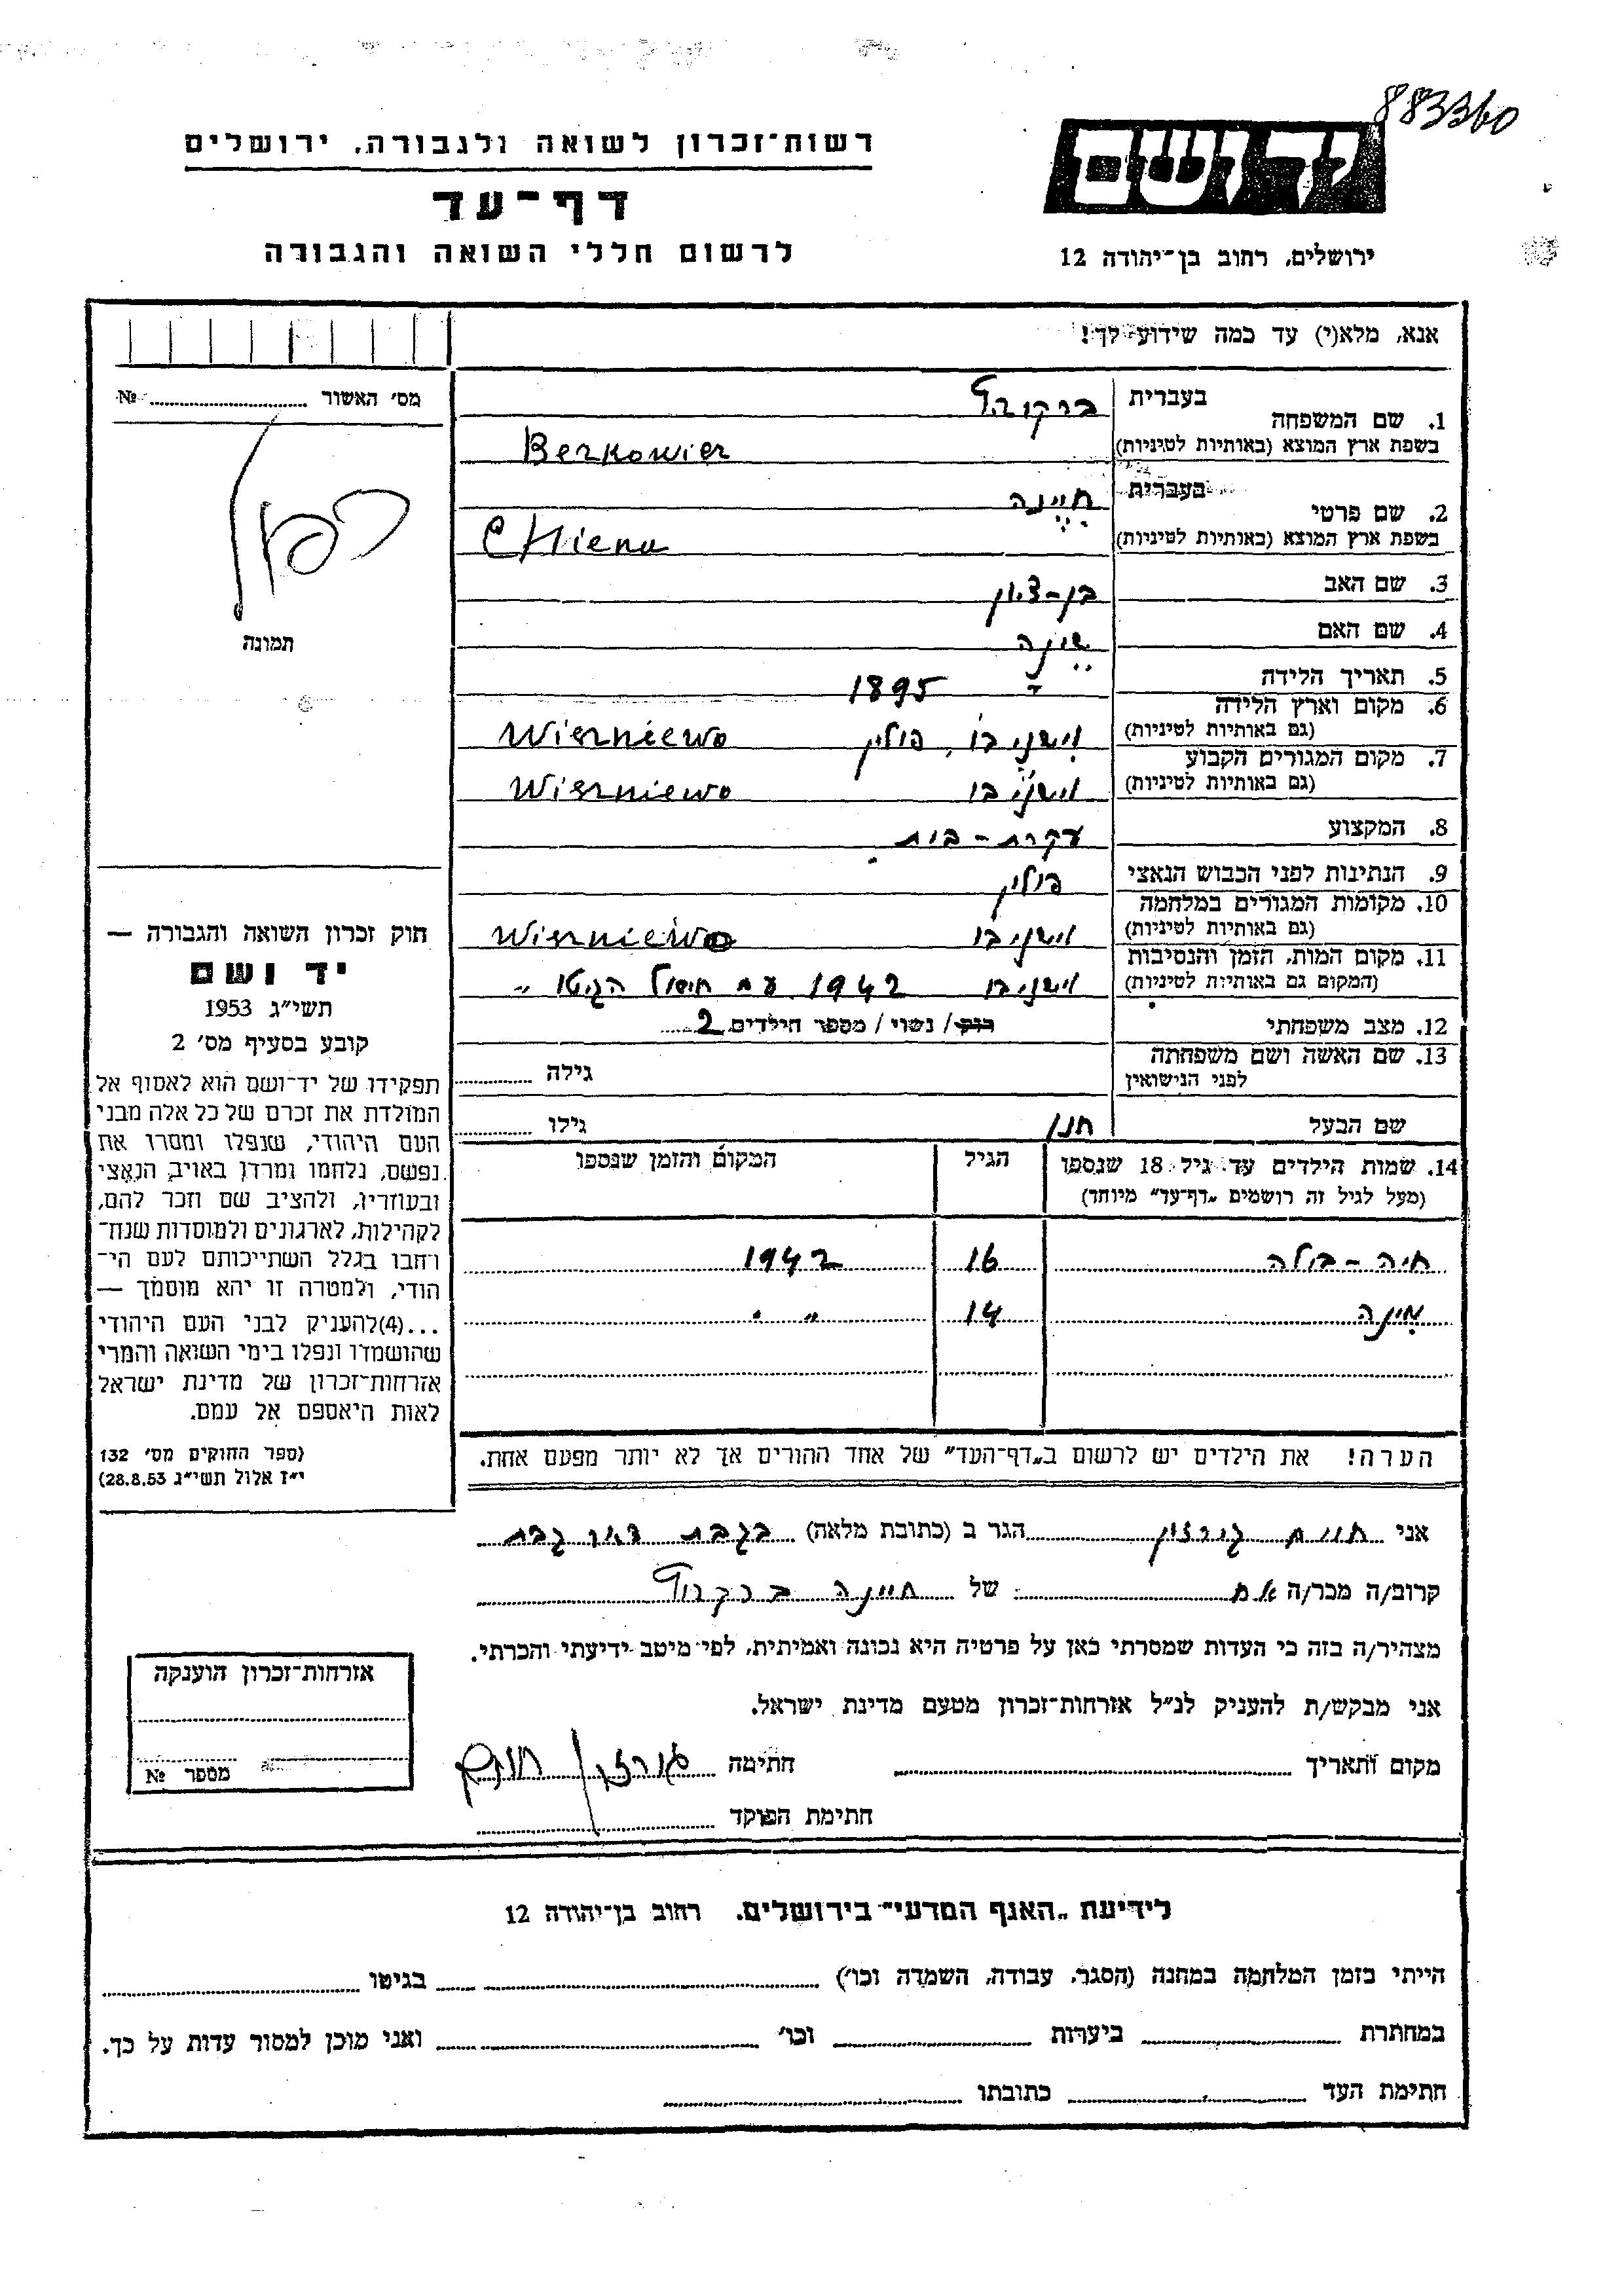 883360
רשות־זכרון לשואה ולגבורה, ירושלים
דף־עד
לרשום חללי השואה והגבורה
יד ושם
ירושלים, רחוב בן־יהודה 12
אנא, מלא(י) עד כמה שידוע לך!
מס' האשור № ........
תמונה
1. שם המשפחה בעברית ברקוביץ
בשפת ארץ המוצא (באותיות לטיניות) Berkowier
2. שם פרטי בעברית חיינה
בשפת ארץ המוצא (באותיות לטיניות) CHiena
3. שם האב בן-ציון
4. שם האם שינה
5. תאריך הלידה 1895
6. מקום וארץ הלידה (גם באותיות לטיניות) וישניבו, פולין Wiszniewo
7. מקום המגורים הקבוע (גם באותיות לטיניות) וישניבו Wiszniewo
8. המקצוע עקרת-בית
9. הנתינות לפני הכבוש הנאצי פולין
10. מקומות המגורים במלחמה (גם באותיות לטיניות) וישניבו Wiszniewo
11. מקום המות, הזמן והנסיבות (המקום גם באותיות לטיניות) וישניבו 1942 עם חיסול הגיטו "
12. מצב משפחתי רוק/ נשוי / מספר הילדים 2
13. שם האשה ושם משפחתה לפני הנישואין גילה
שם הבעל חנן גילו
14. שמות הילדים עד גיל 18 שנספו (מעל לגיל זה רושמים „דף־עד" מיוחד) הגיל המקום והזמן שנספו
חיה - בולה 16 1942
מינה 14 " "
הערה! את הילדים יש לרשום ב„דף־העד" של אחד ההורים אך לא יותר מפעם אחת.
חוק זכרון השואה והגבורה —
יד ושם
תשי״ג 1953
קובע בסעיף מס' 2
תפקידו של יד־ושם הוא לאסוף אל
המולדת את זכרם של כל אלה מבני
העם היהודי, שנפלו ומסרו את
נפשם, נלחמו ומרדו באויב הנאצי
ובעוזריו, ולהציב שם וזכר להם,
לקהילות, לארגונים ולמוסדות שנח־
רחבו בגלל השתייכותם לעם הי־
הודי, ולמטרה זו יהא מוסמך —
...(4)להעניק לבני העם היהודי
שהושמדו ונפלו בימי השואה והמרי
אזרחות־זכרון של מדינת ישראל
לאות היאספם אל עמם.
(ספר החוקים מס' 132
י״ז אלול תשי״ג 28.8.53)
אני חיים גורצון הגר ב (כתובת מלאה) בגבת
קרוב/ה מכר/ה אח של חיינה ברקוביץ
מצהיר/ה בזה כי העדות שמסרתי כאן על פרטיה היא נכונה ואמיתית, לפי מיטב ידיעתי והכרתי.
אני מבקש/ת להעניק לנ״ל אזרחות־זכרון מטעם מדינת ישראל.
מקום ותאריך חתימה גורצון חיים
חתימת הפוקד
אזרחות־זכרון הוענקה
מספר №
לידיעת „האגף המדעי" בירושלים, רחוב בן־יהודה 12
הייתי בזמן המלחמה במחנה (הסגר, עבודה, השמדה וכו') בגיטו
במחתרת ביערות וכו' ואני מוכן למסור עדות על כך.
חתימת העד כתובתו